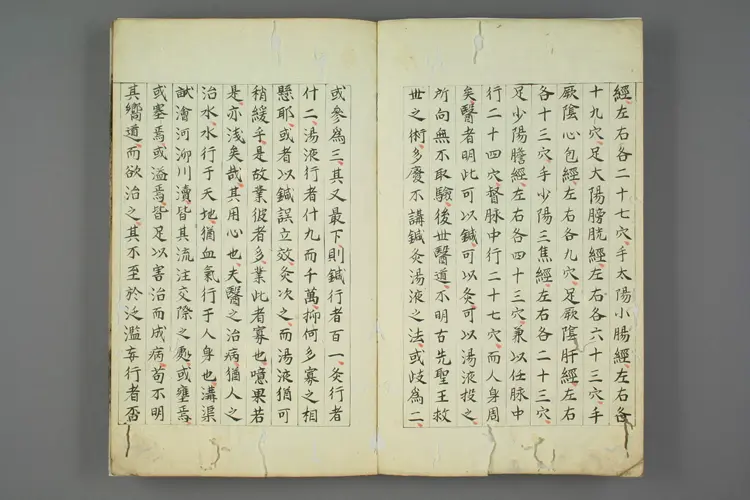 經左右各二十七穴手太陽小腸經左右各
十九穴足太陽膀胱經左右各六十三穴手
厥陰心包經左右各九穴足厥陰肝經左右
各十三穴手少陽三焦經左右各二十三穴
足少陽膽經左右各四十三穴兼以任脉中
行二十四穴督脉中行二十七穴而人身周
矣醫者明此可以鍼可以灸可以湯液投之
所向無不取驗後世醫道不明古先聖王救
世之術多廢不講鍼灸湯液之法或歧為二
或參為三其又最下則鍼行者百一灸行者
什二湯液行者什九而千萬抑何多寡之相
懸耶或者以鍼誤立效灸次之而湯液猶可
稍緩乎是故業彼者多業此者寡也噫果若
是亦淺矣哉其用心也夫醫之治病猶人之
治水水行于天地猶血氣行于人身也溝渠
畎澮河泖川瀆皆其流注交際之處或壅焉
或塞焉或溢焉皆足以害治而成病苟不明
其嚮道而欲治之其不至於泛濫妄行者否